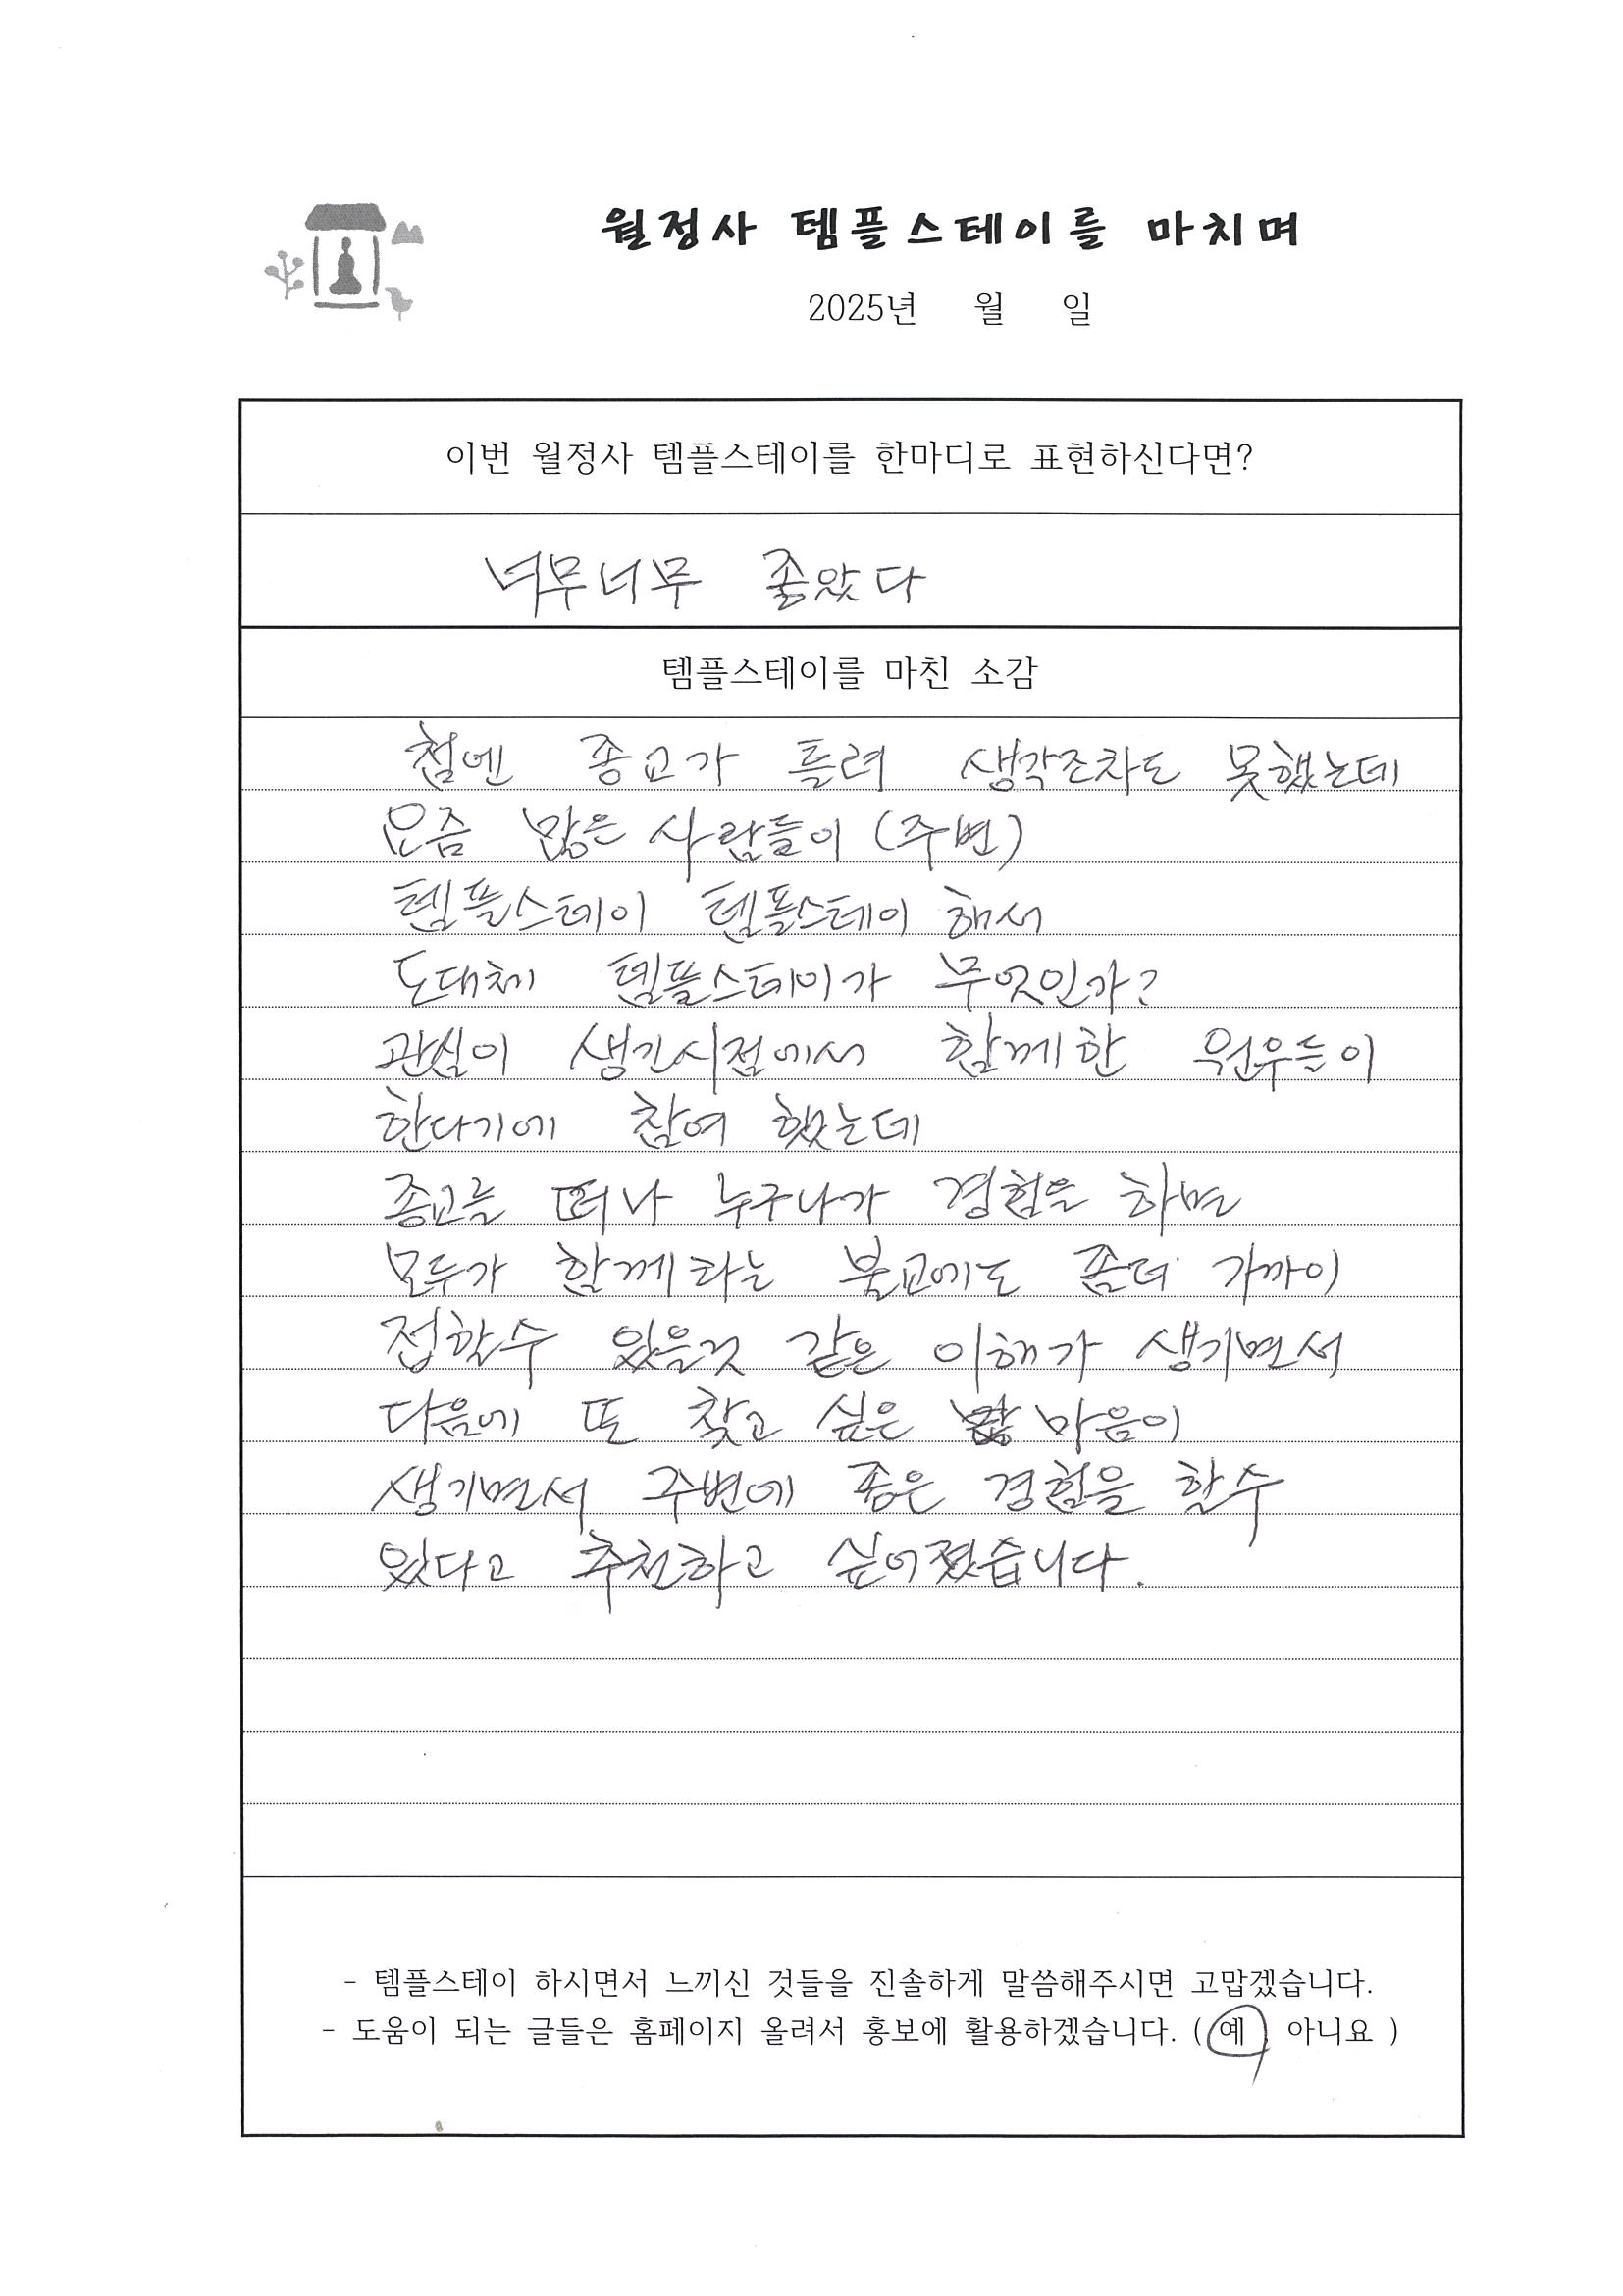 월정사 템플스테이를 마치며
2025년 월 일
이번 월정사 템플스테이를 한마디로 표현하신다면?
너무너무 좋았다
템플스테이를 마친 소감
첨엔 종교가 틀려 생각조차도 못했는데
요즘 많은 사람들이 (주변)
템플스테이 템플스테이 해서
도대체 템플스테이가 무엇인가?
관심이 생긴시점에서 함께한 원우들이
한다기에 참여 했는데
종교를 떠나 누구나가 경험을 하면
모두가 함께하는 불교에도 좀더 가까이
접할수 있을것 같은 이해가 생기면서
다음에 또 찾고 싶은 마음이
생기면서 주변에 좋은 경험을 할수
있다고 추천하고 싶어졌습니다.
- 템플스테이 하시면서 느끼신 것들을 진솔하게 말씀해주시면 고맙겠습니다.
- 도움이 되는 글들은 홈페이지 올려서 홍보에 활용하겠습니다. ( 예 , 아니요 )